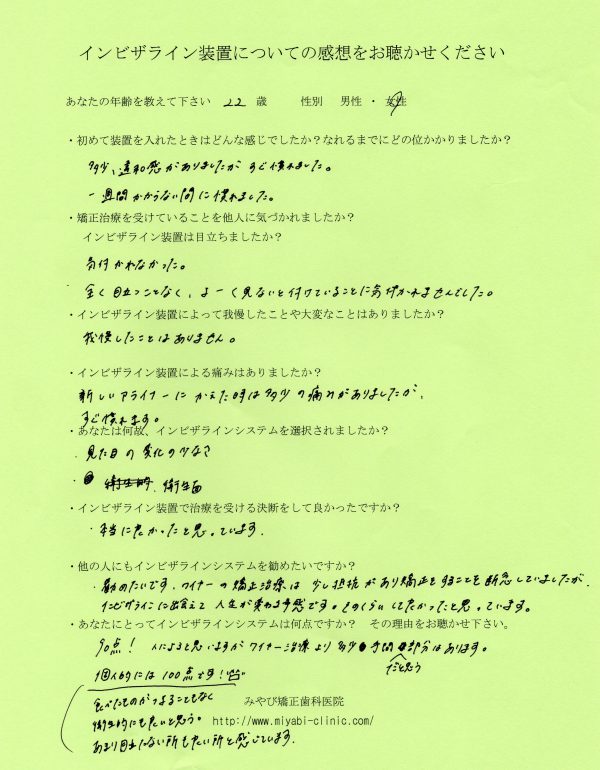 インビザライン装置についての感想をお聴かせください
あなたの年齢を教えて下さい 22 歳 性別 男性 ・ 女性
・初めて装置を入れたときはどんな感じでしたか?なれるまでにどの位かかりましたか?
多少、違和感がありましたが すぐ慣れました。
一週間かからない間に慣れました。
・矯正治療を受けていることを他人に気づかれましたか?
インビザライン装置は目立ちましたか?
気付かれなかった。
全く目立つことなく、よーく見ないと付けていることに気付かれませんでした。
・インビザライン装置によって我慢したことや大変なことはありましたか?
我慢したことはありません。
・インビザライン装置による痛みはありましたか?
新しいアライナーに かえた時は多少の痛みがありましたが、
すぐ慣れます。
・あなたは何故、インビザラインシステムを選択されましたか?
・見た目の変化の少なさ
・衛生的、衛生面
・インビザライン装置で治療を受ける決断をして良かったですか?
・本当に良かったと思っています。
・他の人にもインビザラインシステムを勧めたいですか?
・勧めたいです。ワイヤーの矯正治療は 少し抵抗があり矯正をすることを断念していましたが、
インビザラインに出会えて 人生が変わる予感です。そのくらいしてよかったと思っています。
・あなたにとってインビザラインシステムは何点ですか? その理由をお聴かせ下さい。
90点! 人によると思いますがワイヤー治療より多少手間な部分はあります。
だと思う
個人的には100点です!
食べたものがつまることもなく
衛生的にも良いと思う。
あまり目立たない所も良い所と感じています。
みやび矯正歯科医院
http://www.miyabi-clinic.com/